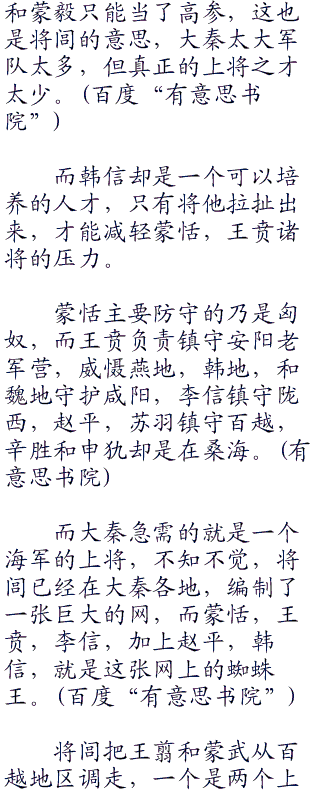 和蒙毅只能当了高参，这也
是将闾的意思，大秦太大军
队太多，但真正的上将之才
太少。(百度“有意思书
院”)
而韩信却是一个可以培
养的人才，只有将他拉扯出
来，才能减轻蒙恬，王贲诸
将的压力。
蒙恬主要防守的乃是匈
奴，而王贲负责镇守安阳老
军营，威慑燕地，韩地，和
魏地守护咸阳，李信镇守陇
西，赵平，苏羽镇守百越，
辛胜和申犰却是在桑海。(有
意思书院)
而大秦急需的就是一个
海军的上将，不知不觉，将
闾已经在大秦各地，编制了
一张巨大的网，而蒙恬，王
贲，李信，加上赵平，韩
信，就是这张网上的蜘蛛
王。(百度“有意思书院”)
将闾把王翦和蒙武从百
越地区调走，一个是两个上